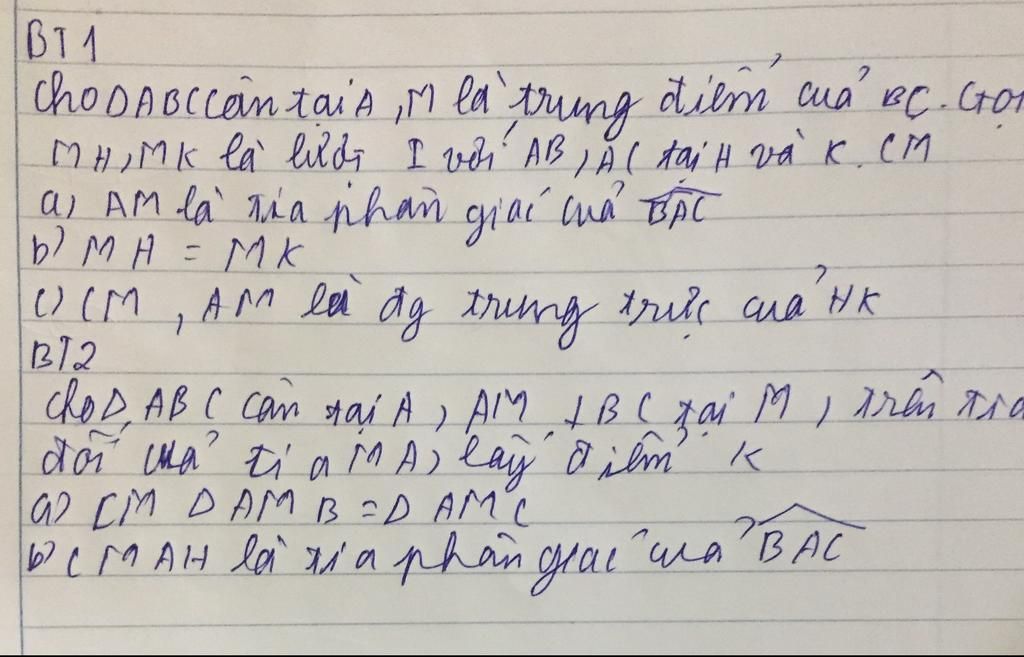 BT1
Cho ∆ABC cân tại A, M là trung điểm của BC. Gọi
MH, MK là lượt ⊥ với AB, AC tại H và K. CM
a) AM là tia phân giác của BAC
b) MH = MK
c) CM, AM là đg trung trực của HK
BT2
Cho ∆ ABC cân tại A, AM ⊥ BC tại M, trên tia
đối của tia MA, lấy điểm K
a) CM ∆ AMB = ∆ AMC
b) CM AH là tia phân giác của BAC